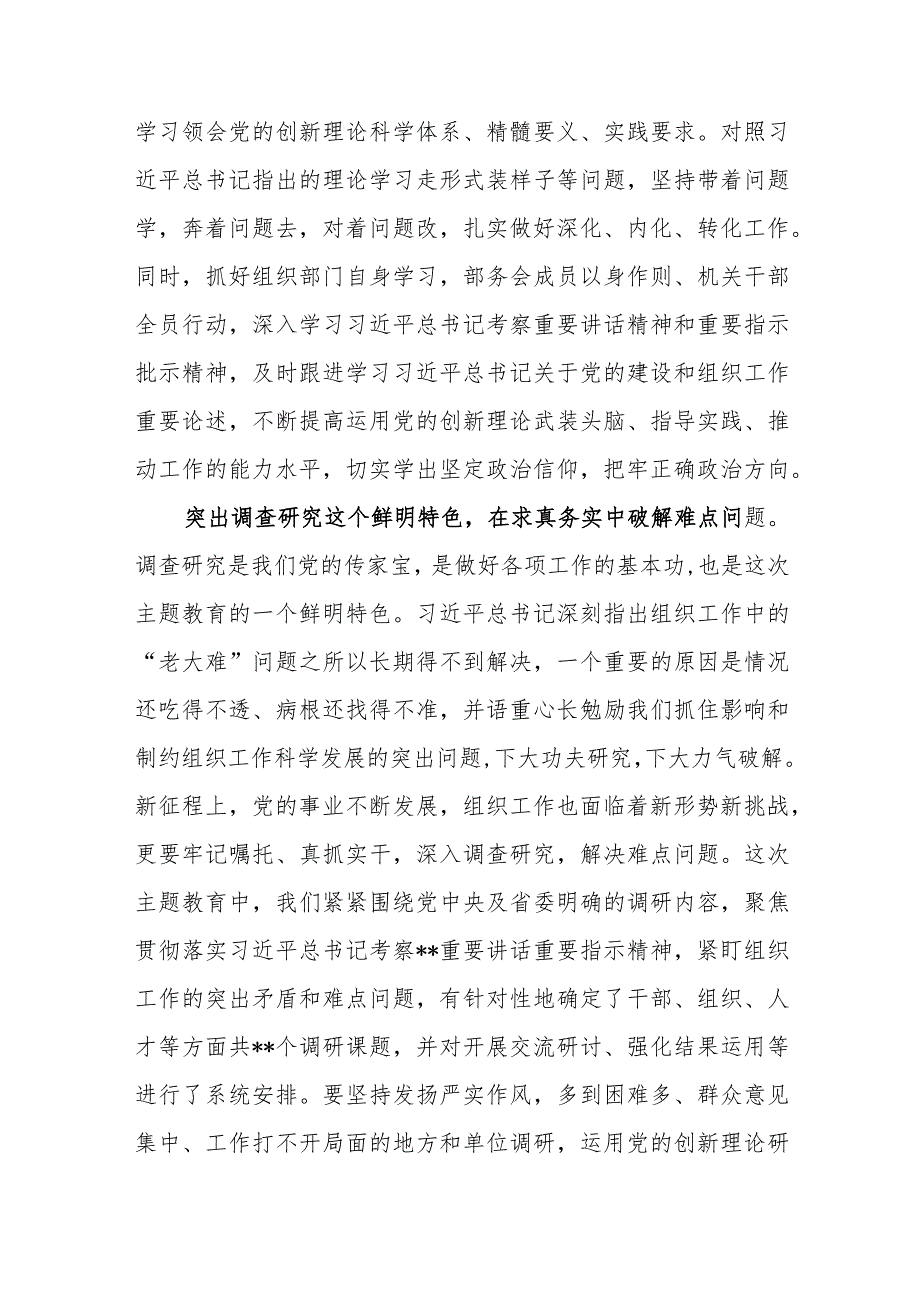 学习领会党的创新理论科学体系、精髓要义、实践要求。对照习
近平总书记指出的理论学习走形式装样子等问题，坚持带着问题
学，奔着问题去，对着问题改，扎实做好深化、内化、转化工作。
同时，抓好组织部门自身学习，部务会成员以身作则、机关干部
全员行动，深入学习习近平总书记考察重要讲话精神和重要指示
批示精神，及时跟进学习习近平总书记关于党的建设和组织工作
重要论述，不断提高运用党的创新理论武装头脑、指导实践、推
动工作的能力水平，切实学出坚定政治信仰，把牢正确政治方向。
突出调查研究这个鲜明特色，在求真务实中破解难点问题。
调查研究是我们党的传家宝，是做好各项工作的基本功,也是这次
主题教育的一个鲜明特色。习近平总书记深刻指出组织工作中的
“老大难”问题之所以长期得不到解决，一个重要的原因是情况
还吃得不透、病根还找得不准，并语重心长勉励我们抓住影响和
制约组织工作科学发展的突出问题,下大功夫研究，下大力气破解。
新征程上，党的事业不断发展，组织工作也面临着新形势新挑战，
更要牢记嘱托、真抓实干，深入调查研究，解决难点问题。这次
主题教育中，我们紧紧围绕党中央及省委明确的调研内容，聚焦
贯彻落实习近平总书记考察**重要讲话重要指示精神，紧盯组织
工作的突出矛盾和难点问题，有针对性地确定了干部、组织、人
才等方面共**个调研课题，并对开展交流研讨、强化结果运用等
进行了系统安排。要坚持发扬严实作风，多到困难多、群众意见
集中、工作打不开局面的地方和单位调研，运用党的创新理论研